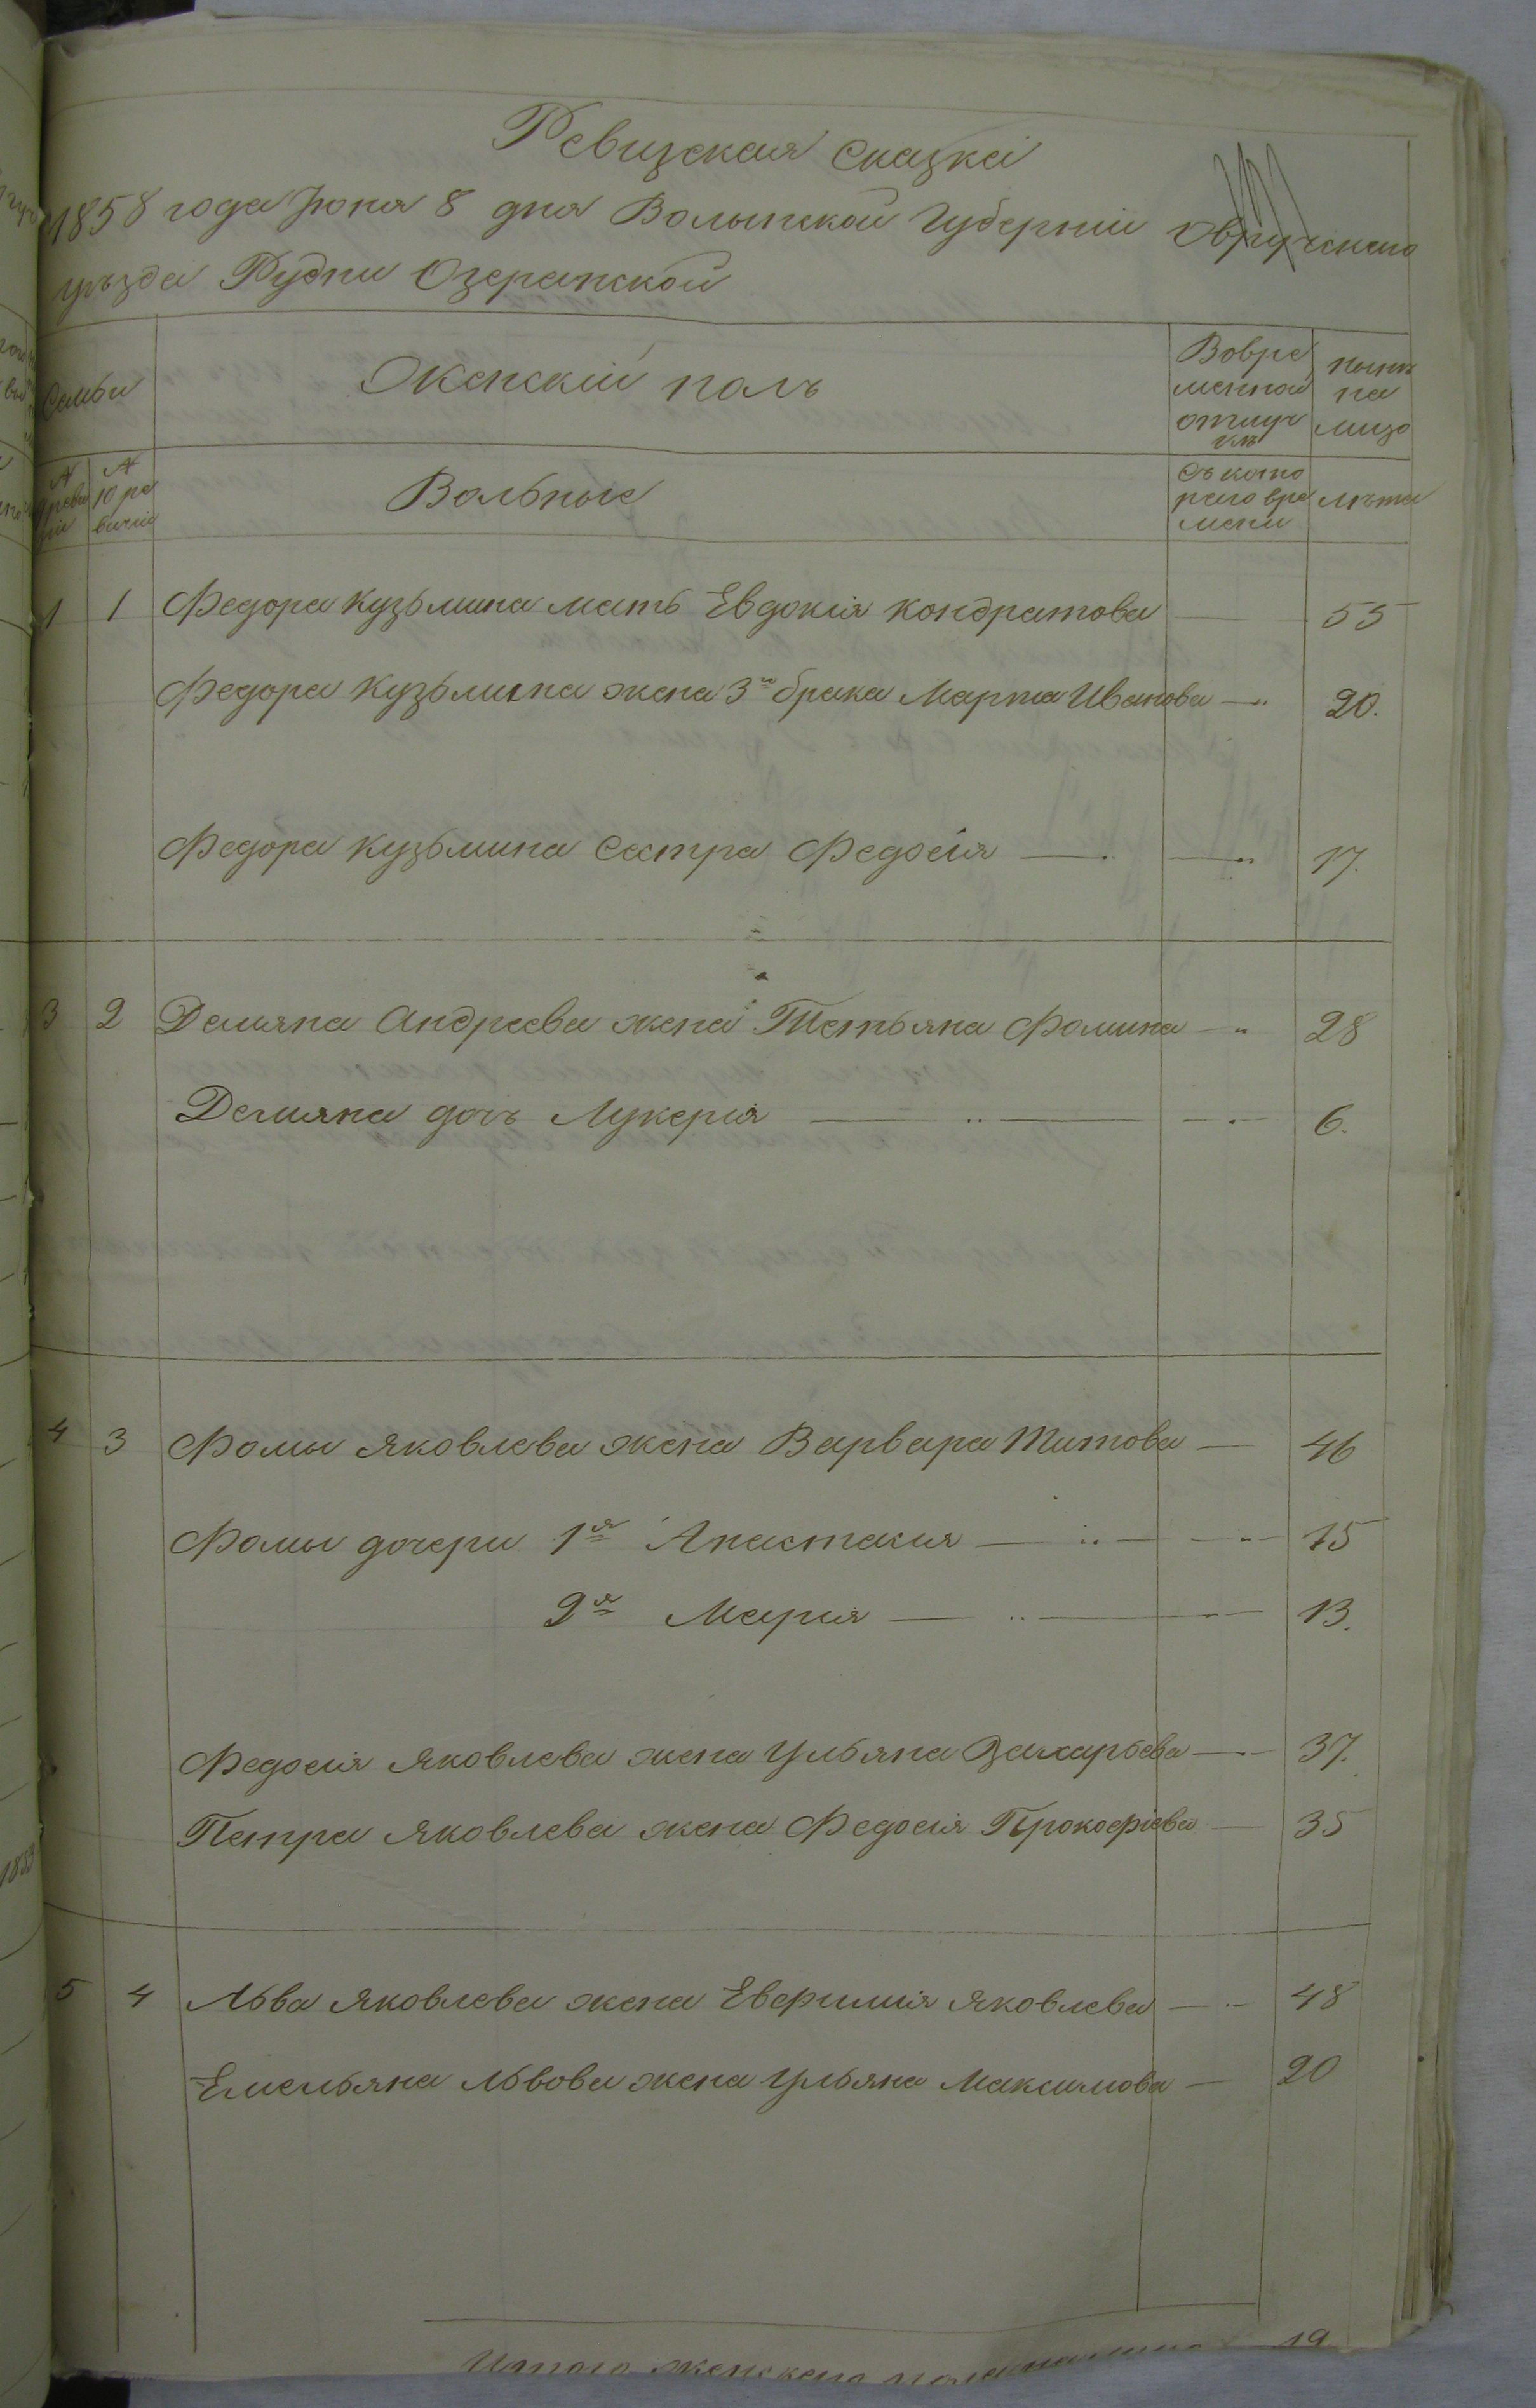 Ревизская сказка
1858 года Июня 8 дня Волынской Губернии Овручскаго
уѣзда Рудни Озеранской
Семьи
Женскій полъ
Вовре
менной
отлуч
кѣ
Ныне
на
лицо
№
ревизіи
№
10 ре
визіи
Вольные
Съ кото
раго вре
мени
лѣта
1 1 Федора Кузьмина мать Евдокія Кондратова 55
Федора Кузьмина жена 3го брака Марта Иванова 20.
Федора Кузьмина сестра Федосія 17.
3 2 Демяна Андреева жена Тетьяна Фомина 28
Демяна дочъ Лукерія 6.
4 3 Фомы Яковлева жена Варвара Титова 46
Фомы дочери 1я Анастасия 15
2я Мария 13.
Федосія Яковлева жена Ульяна Захарьева 37.
Петра Яковлева жена Федосія Прокофіева 35
5 4 Льва Яковлева жена Евфимія Яковлева 48
Емельяна Львова жена Ульяна Максимова 20
Итого женскаго пола налицо
1853